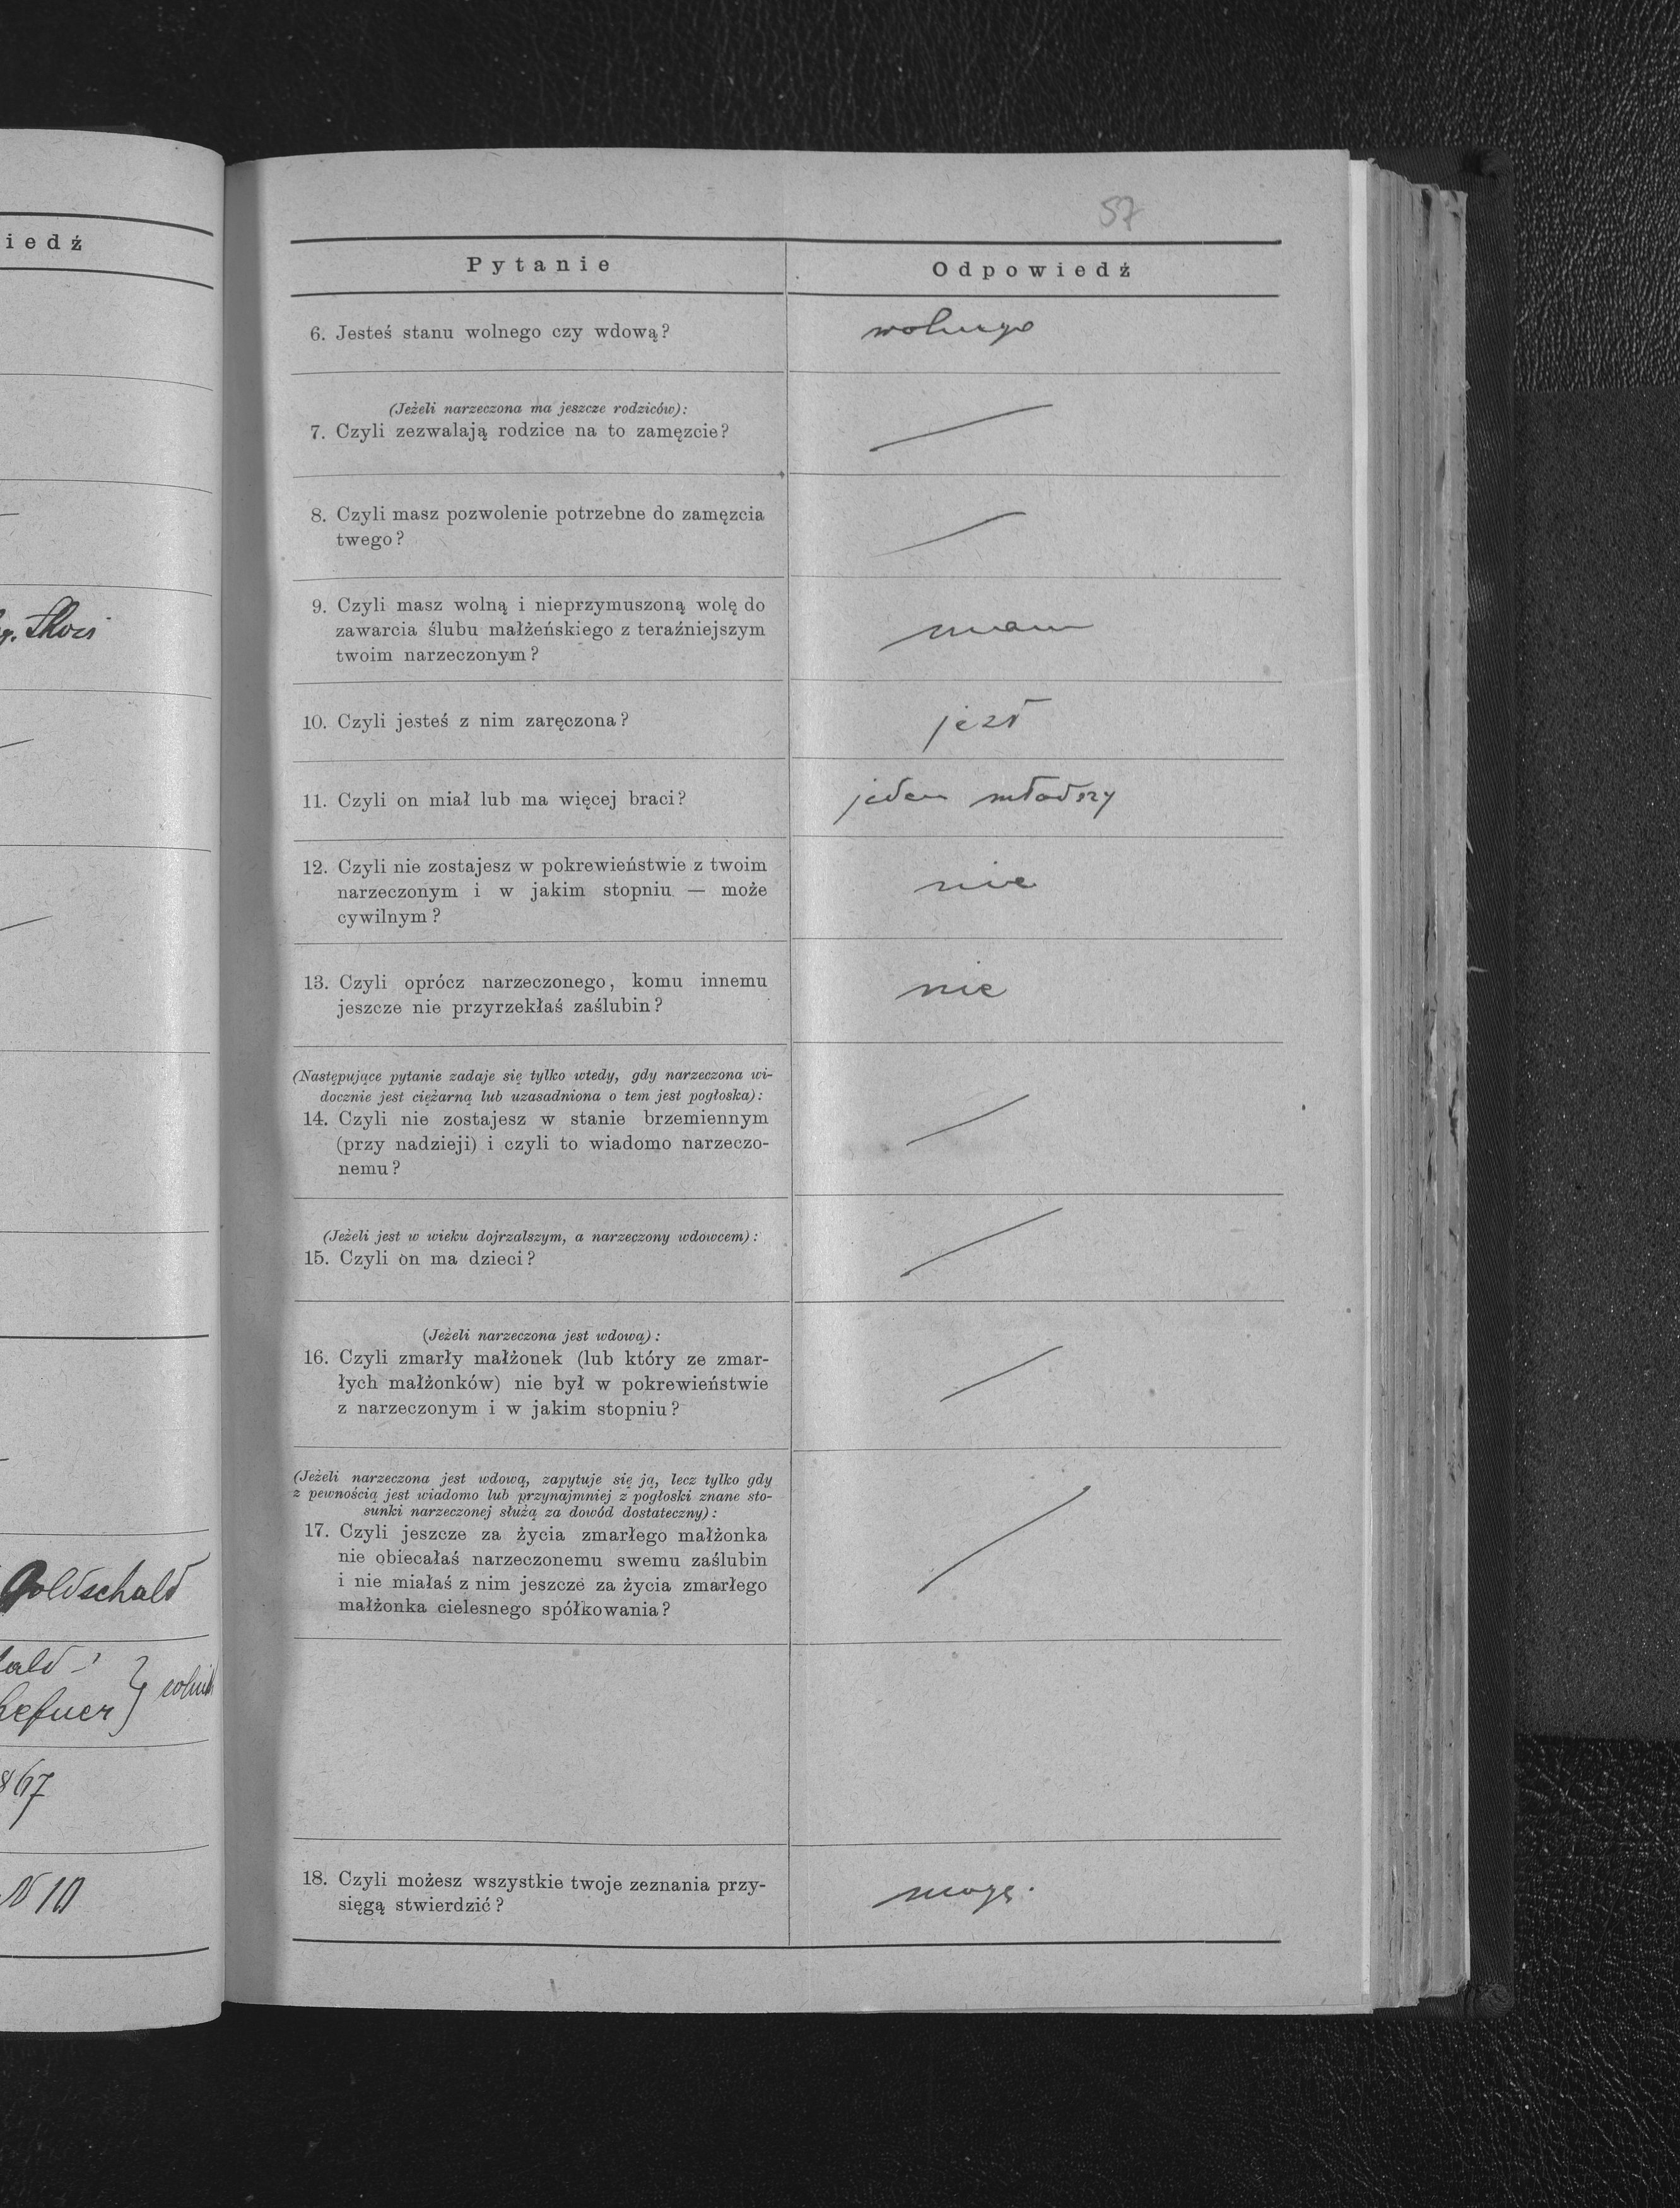 iedź
Skoci
Goldschald
ald
hefner } rolnik
867
N 10
57
Pytanie
Odpowiedź
6. Jesteś stanu wolnego czy wdową?
wolnego
(Jeżeli narzeczona ma jeszcze rodziców):
7. Czyli zezwalają rodzice na to zamęzcie?
8. Czyli masz pozwolenie potrzebne do zamęzcia
twego?
9. Czyli masz wolną i nieprzymuszoną wolę do
zawarcia ślubu małżeńskiego z teraźniejszym
twoim narzeczonym?
mam
10. Czyli jesteś z nim zaręczona?
jest
11. Czyli on miał lub ma więcej braci?
jeden młodszy
12. Czyli nie zostajesz w pokrewieństwie z twoim
narzeczonym i w jakim stopniu — może
cywilnym?
nie
13. Czyli oprócz narzeczonego, komu innemu
jeszcze nie przyrzekłaś zaślubin?
nie
(Następujące pytanie zadaje się tylko wtedy, gdy narzeczona wi-
docznie jest ciężarną lub uzasadniona o tem jest pogłoska):
14. Czyli nie zostajesz w stanie brzemiennym
(przy nadzieji) i czyli to wiadomo narzeczo-
nemu?
(Jeżeli jest w wieku dojrzalszym, a narzeczony wdowcem):
15. Czyli on ma dzieci?
(Jeżeli narzeczona jest wdową):
16. Czyli zmarły małżonek (lub który ze zmar-
łych małżonków) nie był w pokrewieństwie
z narzeczonym i w jakim stopniu?
(Jeżeli narzeczona jest wdową, zapytuje się ją, lecz tylko gdy
z pewnością jest wiadomo lub przynajmniej z pogłoski znane sto-
sunki narzeczonej służą za dowód dostateczny):
17. Czyli jeszcze za życia zmarłego małżonka
nie obiecałaś narzeczonemu swemu zaślubin
i nie miałaś z nim jeszcze za życia zmarłego
małżonka cielesnego spółkowania?
18. Czyli możesz wszystkie twoje zeznania przy-
sięgą stwierdzić?
mogę.